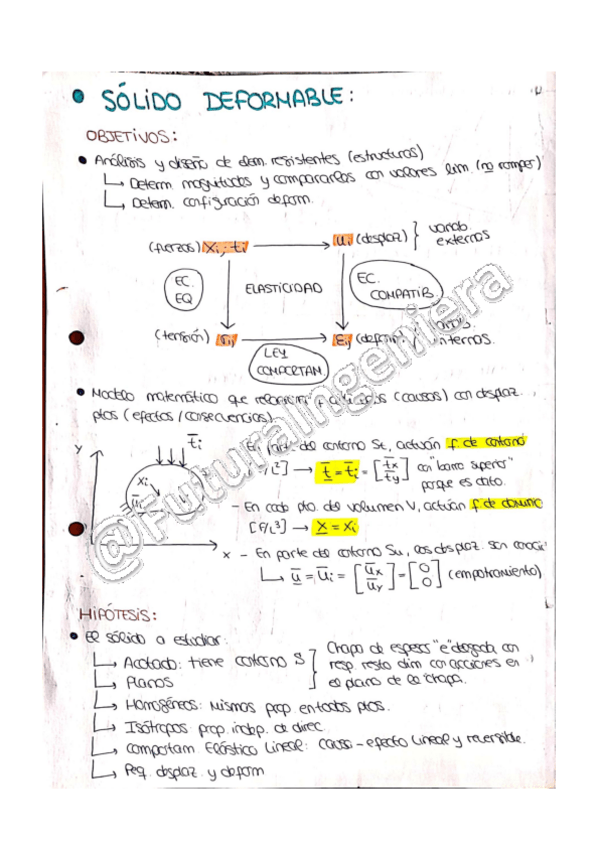 • SÓLIDO DEFORMABLE:
OBJETIVOS:
• Análisis y diseño de elem. resistentes (estructuras)
↳ Determ. magnitudes y compararlas con valores lim. (no romper)
↳ Determ. configuración deform.
(fuerzas) Xi, ti → ui (desplaz) } variab. externas
EC. EQ
ELASTICIDAD
EC. COMPATIB.
(tensión) σij → εij (deform) internas.
LEY COMPORTAM.
• Modelo matemático que (causas) con desplaz.
ptos (efectos/consecuencias).
y
t̄i
xi
ūi
V
x
del contorno St, actúan f. de contorno
→ t̄ = t̄i = [t̄x t̄y] con "barra superior" porque es dato.
- En cada pto. del volumen V, actúan f. de dominio
[F/L³] → X = Xi
- En parte del contorno Su, los desplaz. son
↳ ū = ūi = [ūx ūy] = [0 0] (empotramiento)
HIPÓTESIS:
• El sólido a estudiar:
↳ Acotado: tiene contorno S
↳ Planos
} Chapa de espesor "e" delgada con
resp. resto dim con acciones en
el plano de la chapa.
↳ Homogéneos: Mismas prop en todos ptos.
↳ Isótropos: prop. indep. de direc.
↳ Comportam. Elástico Lineal: causa-efecto lineal y reversible.
↳ Peq. desplaz. y deform
@FuturaIngeniera